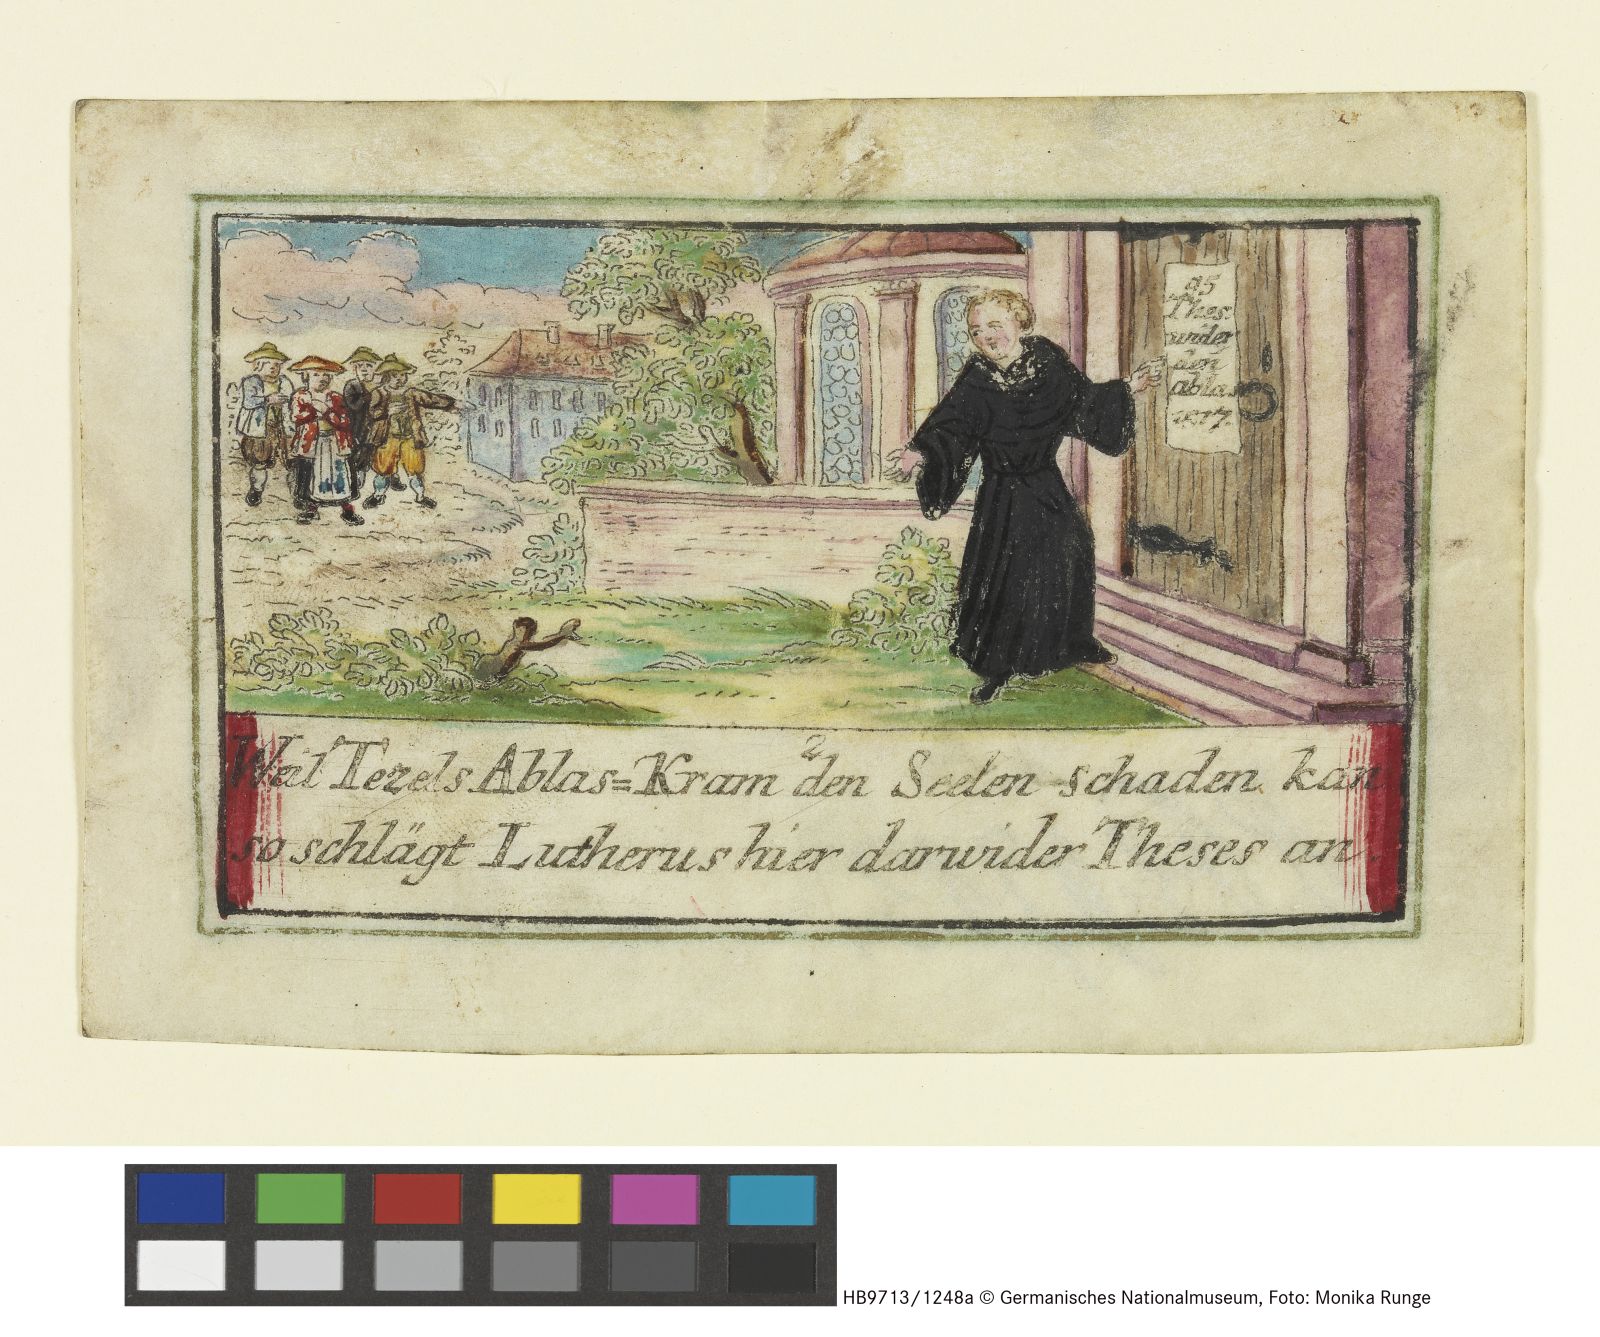 95
Thes:
wider
den
ablas
1517.
2
Weil Tezels Ablas=Kram den Seelen schaden kan
so schlägt Lutherus hier darwider Theses an.
HB9713/1248a © Germanisches Nationalmuseum, Foto: Monika Runge